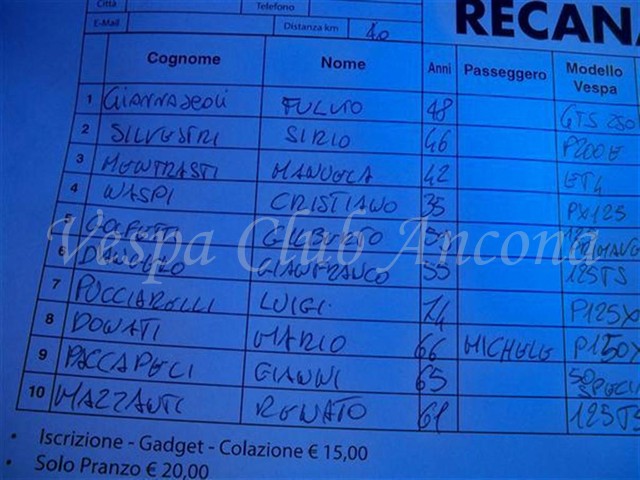 Città Telefono RECANA
E-Mail Distanza km 40
Cognome Nome Anni Passeggero Modello Vespa
1 FULVIO 48 GTS 250
2 SILVESTRI SIRIO 46 P200E
3 MENTRASTI MANUELA 42 ET4
4 WASPI CRISTIANO 35 PX125
5 GILBERTO
6 GIANFRANCO 55 125TS
7 PUCCIARELLI LUIGI 74 P125X
8 DONATI MARIO 66 MICHELE P150X
9 PACCAPELI GIANNI 65 50 SPECI
10 MAZZANTI RENATO 61 125TS
Vespa Club Ancona
• Iscrizione - Gadget - Colazione € 15,00
• Solo Pranzo € 20,00